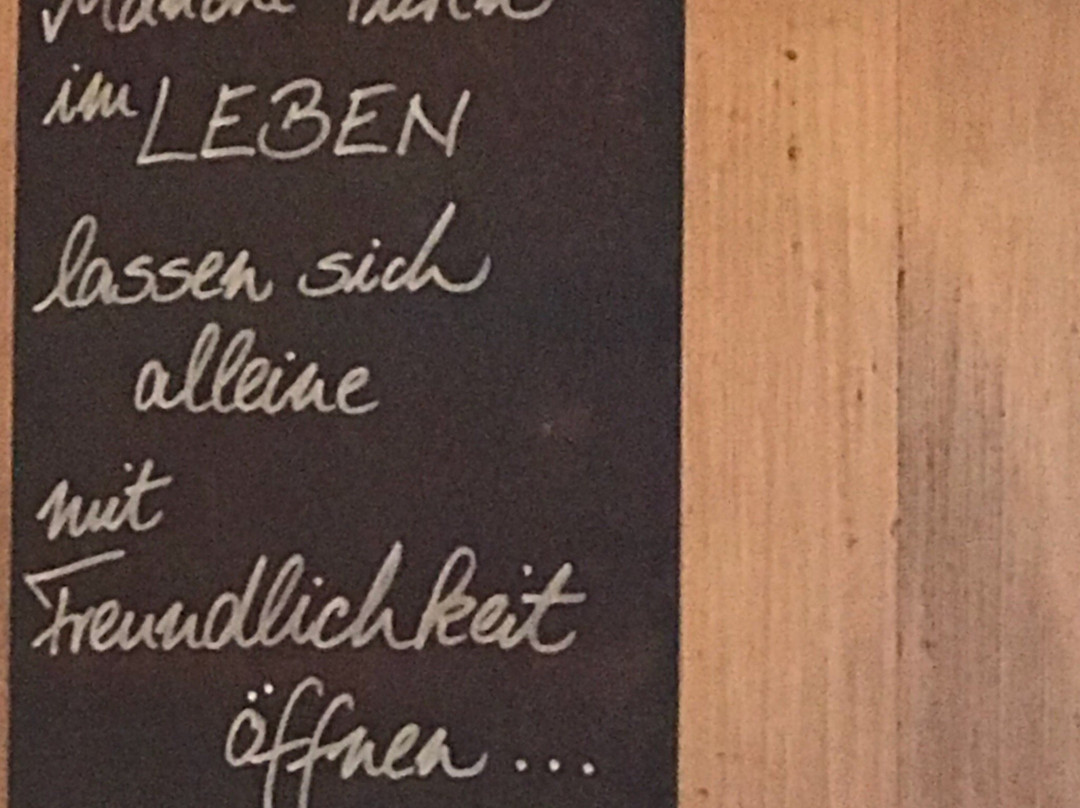 Manche Türen
im LEBEN
lassen sich
alleine
mit
Freundlichkeit
öffnen ...